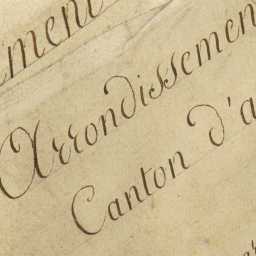 ement
Arrondissemen
Canton d'a